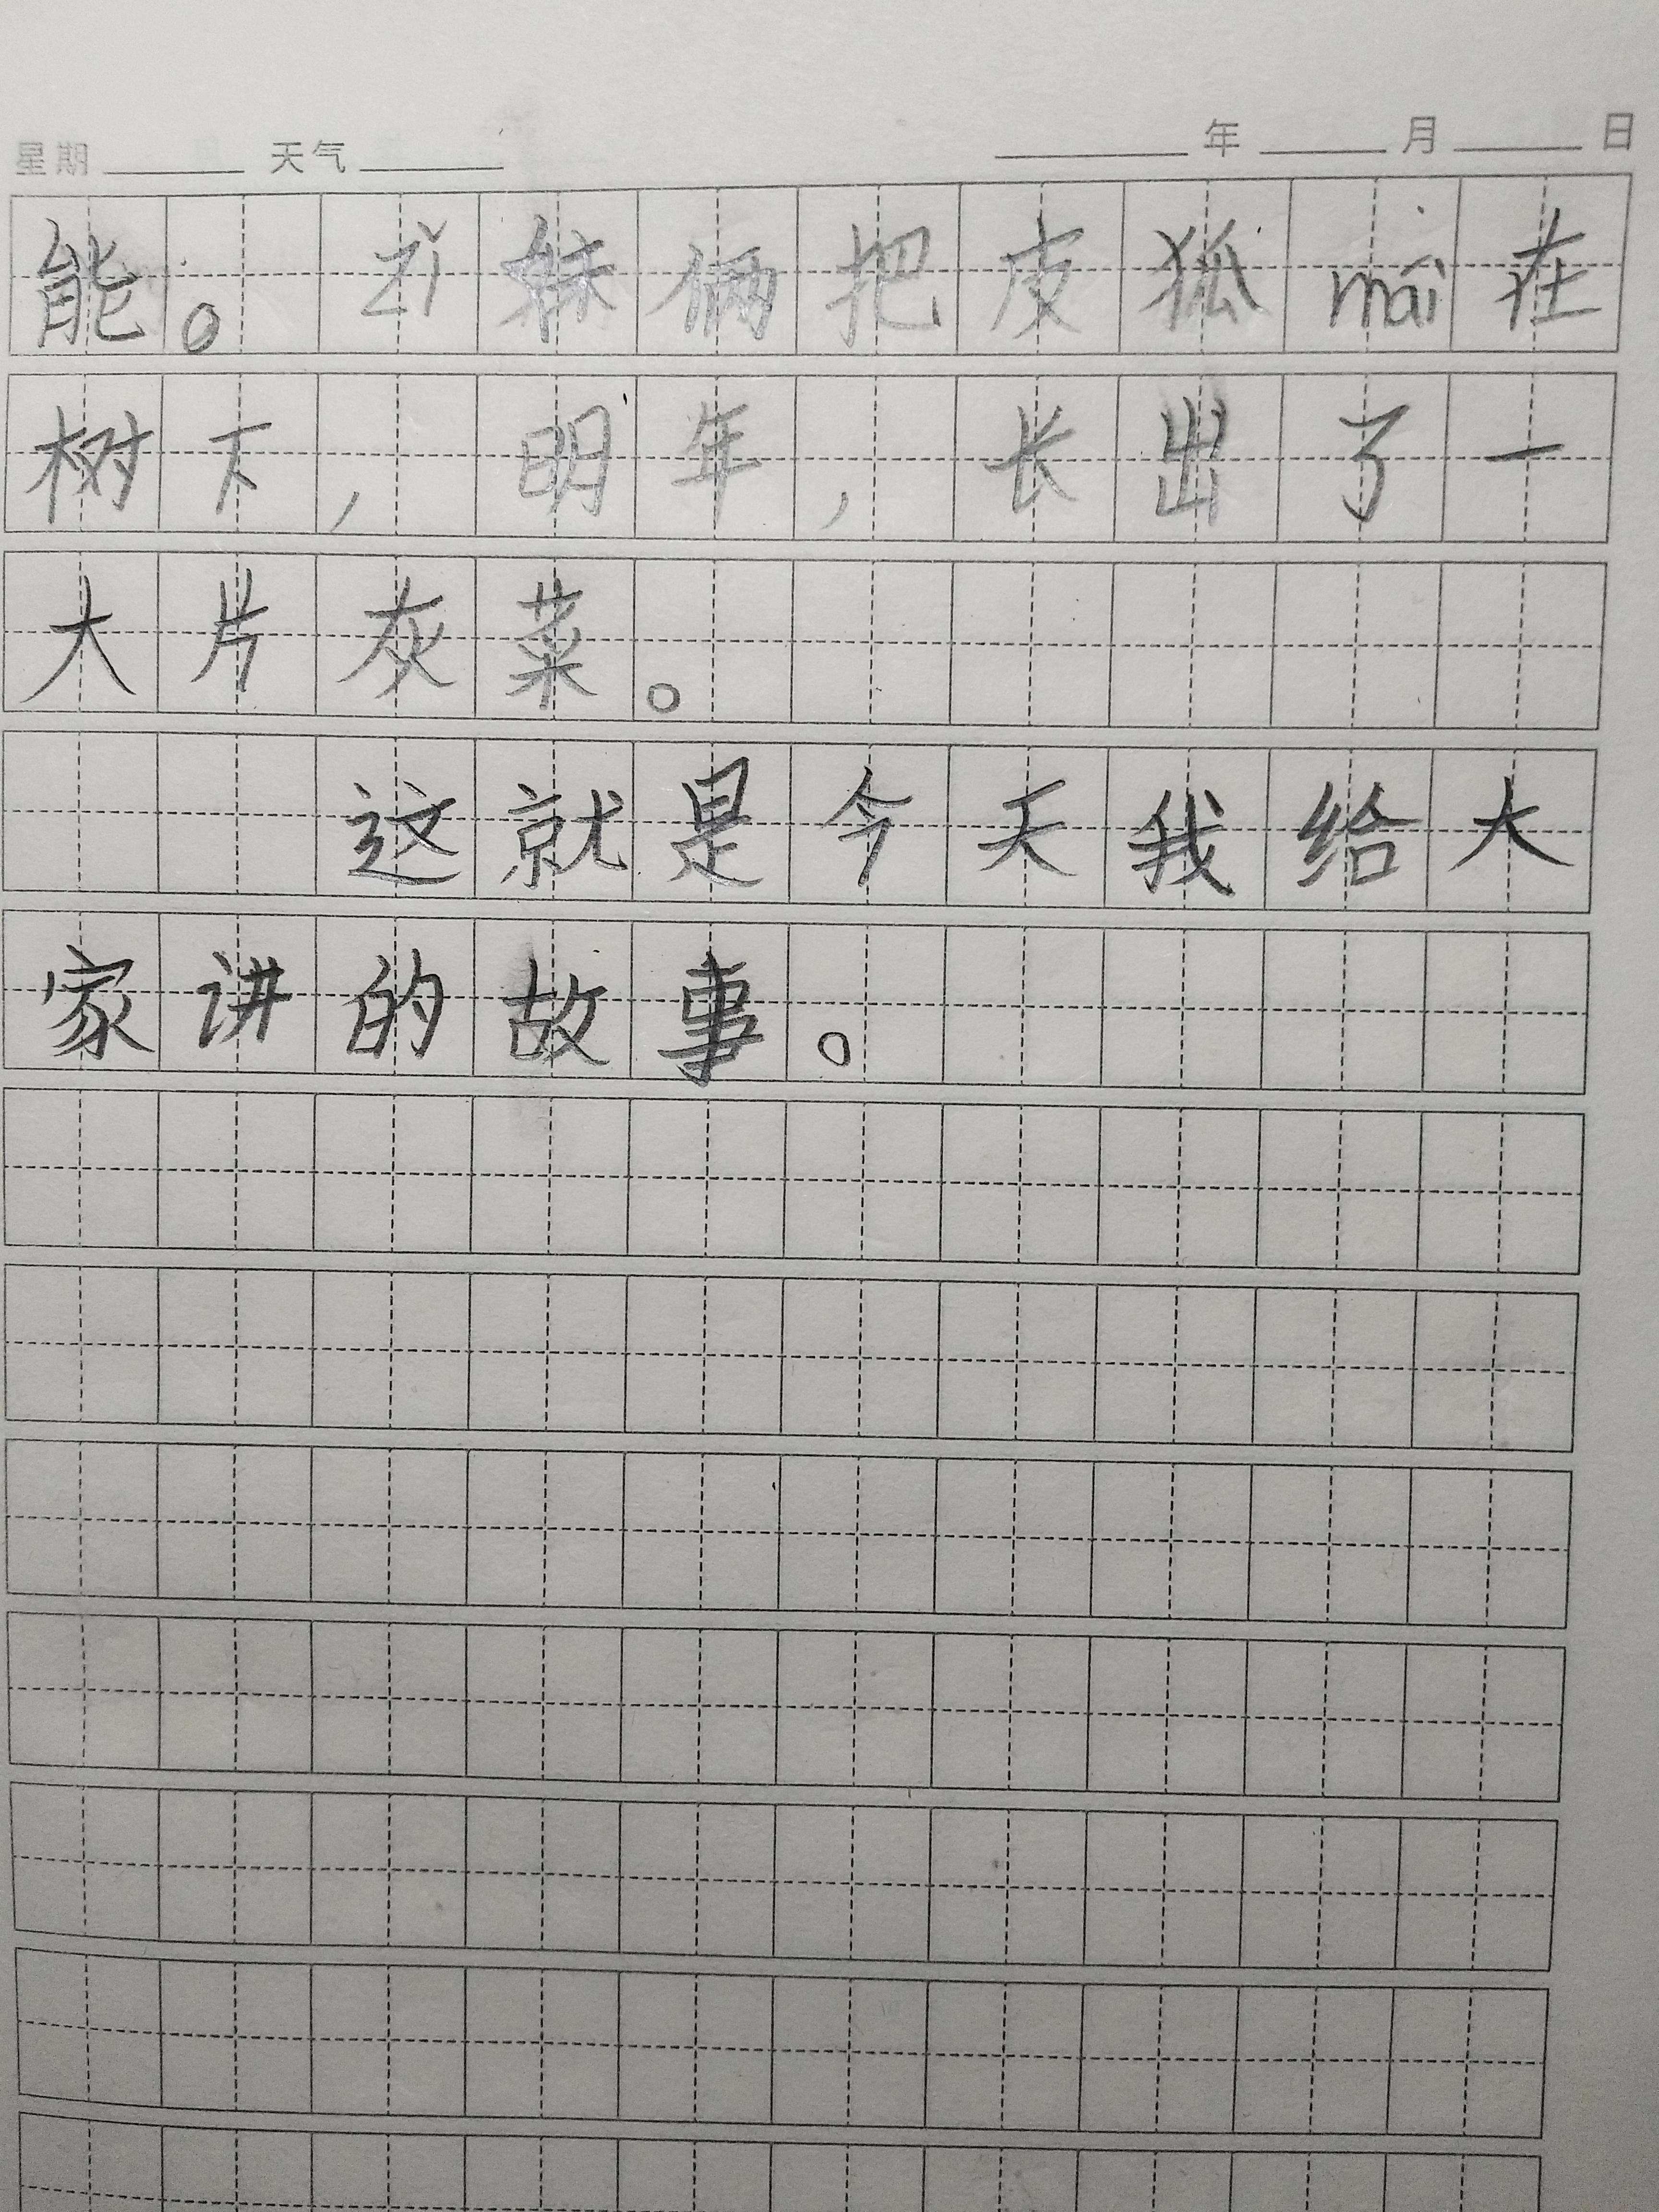 星期 天气 年 月 日
能。zǐ妹俩把皮狐mái在
树下，明年，长出了一
大片灰菜。
这就是今天我给大
家讲的故事。